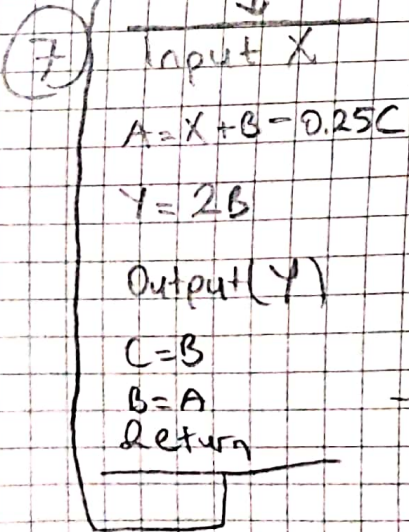 7
Input X
A=X+B-0.25C
Y=2B
Output(Y)
C=B
B=A
Return